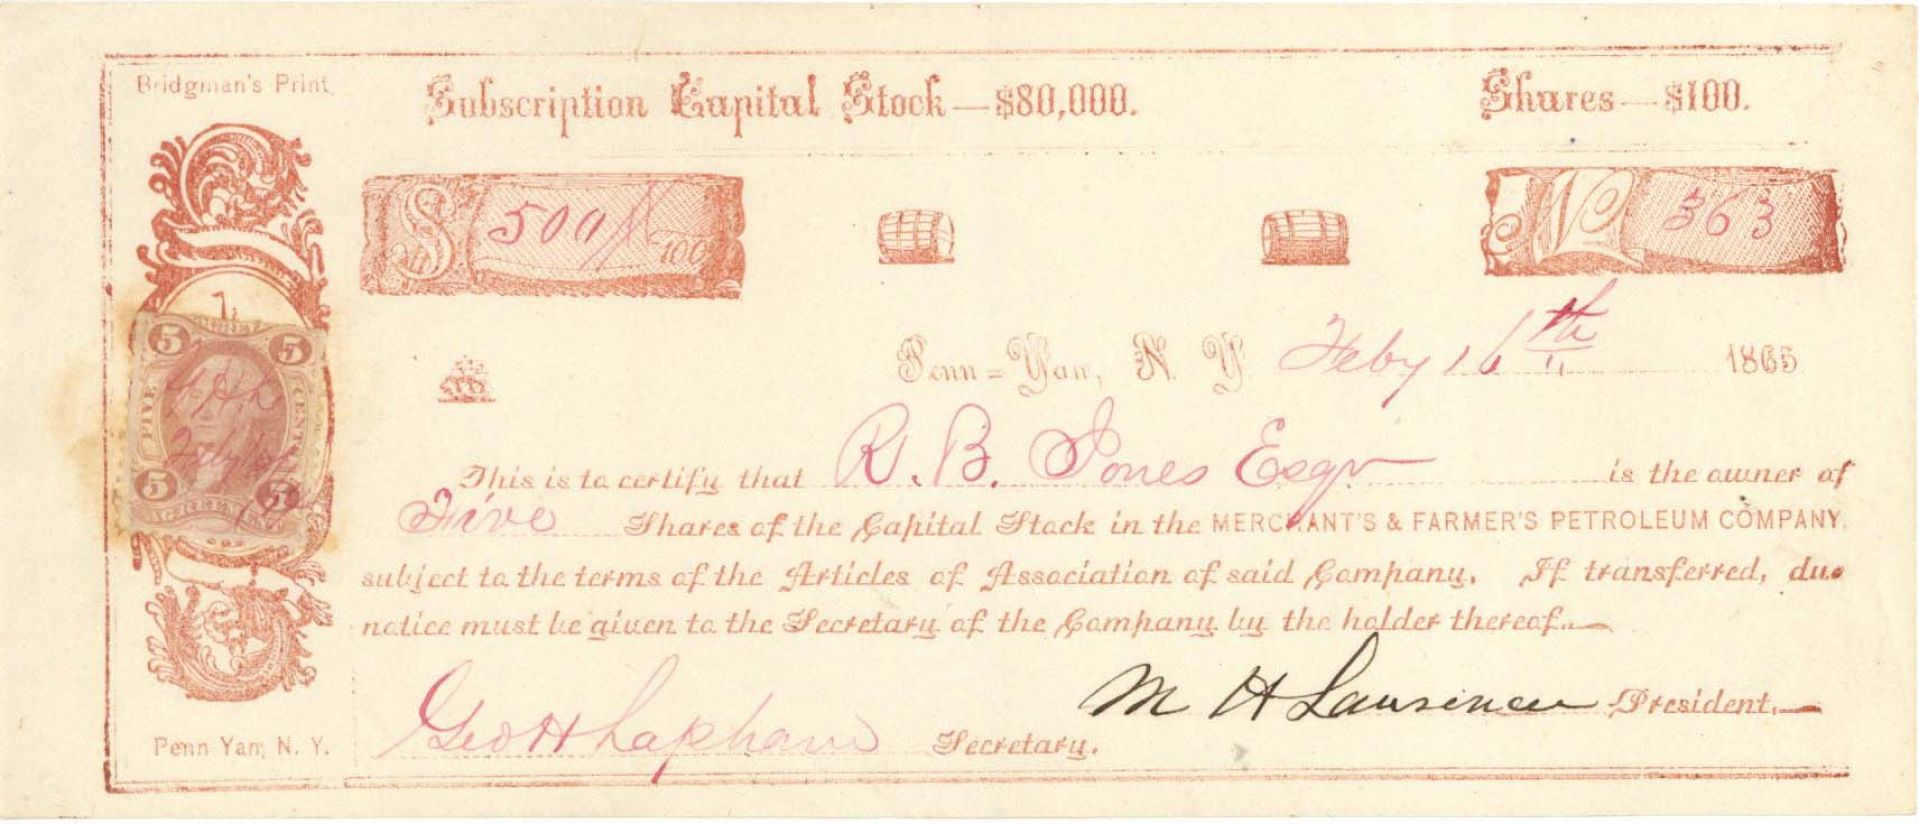 Bridgman's Print.
Subscription Capital Stock—$80,000.
Shares—$100.
$ 500 /100
No 363
Penn=Yan, N. Y. Feby 16th 1865
This is to certify that R. B. Jones Esqr is the owner of
Five Shares of the Capital Stock in the MERCHANT'S & FARMER'S PETROLEUM COMPANY.
subject to the terms of the Articles of Association of said Company. If transferred, due
notice must be given to the Secretary of the Company by the holder thereof.
Geo H Lapham Secretary.
M H Lawrence President.
Penn Yan, N. Y.
5 5
FIVE CENTS
G.H.L
5 5